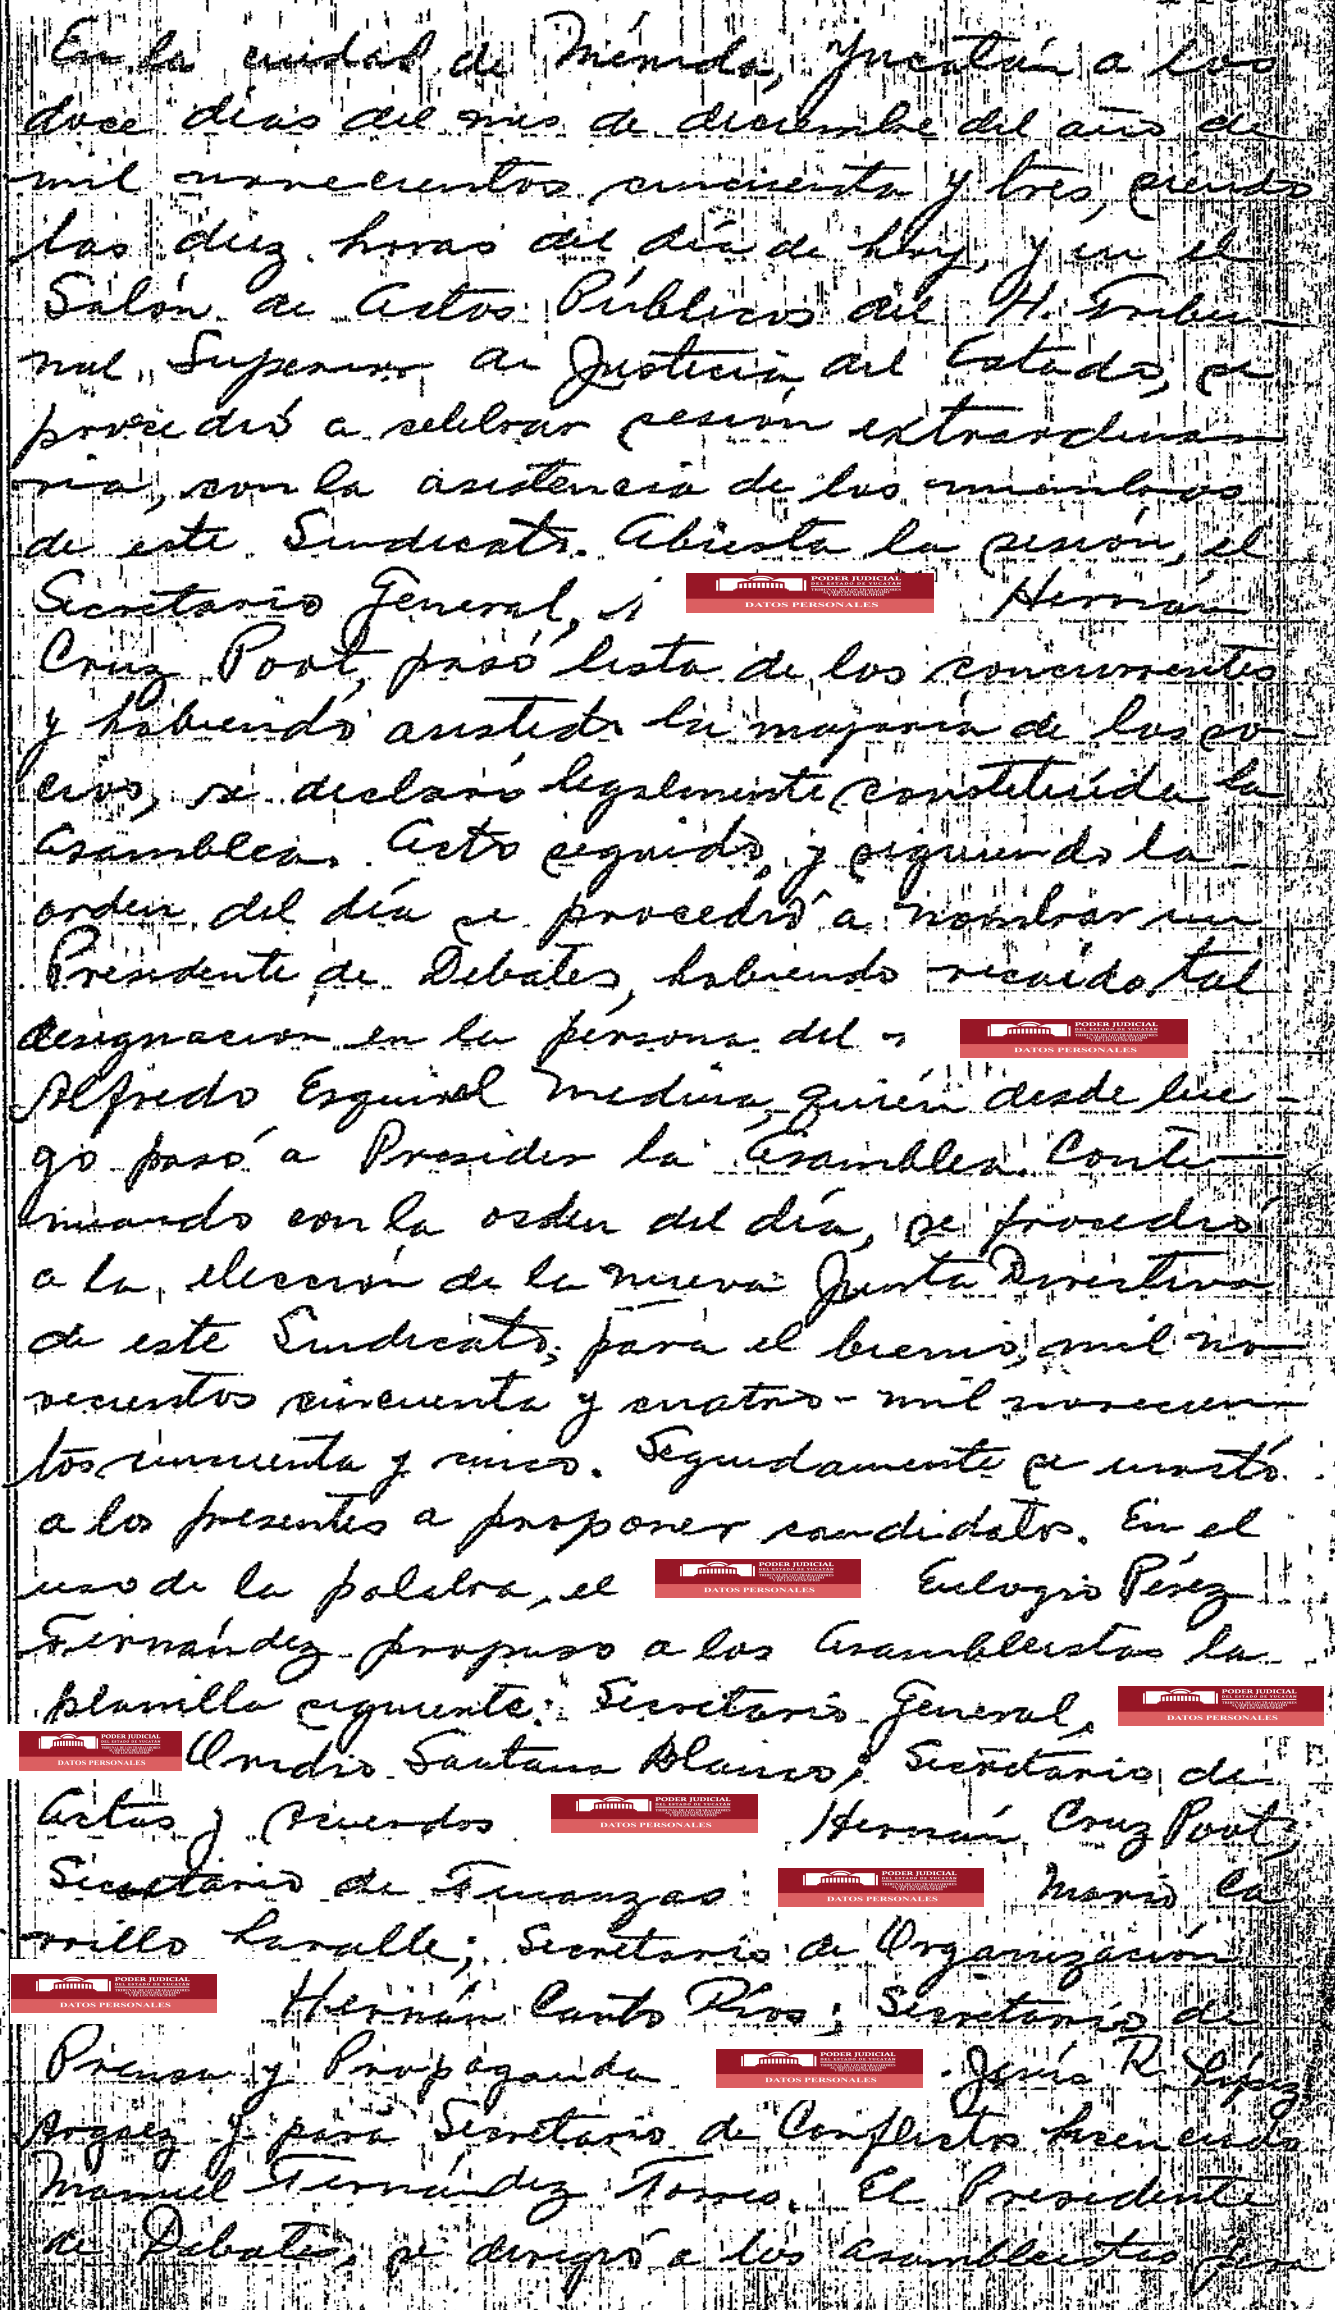 En la ciudad de Mérida, Yucatán a los
doce días del mes de diciembre del año de
mil novecientos cincuenta y tres, siendo
las diez horas del día de hoy, y en el
Salón de Actos Públicos del H. Tribu-
nal Superior de Justicia del Estado, se
procedió a celebrar sesión extraordina-
ria, con la asistencia de los miembros
de este Sindicato. Abierta la sesión, el
Secretario General, PODER JUDICIAL DEL ESTADO DE YUCATÁN DATOS PERSONALES Hernán
Cruz Poot, pasó lista de los concurrentes
y habiendo asistido la mayoría de los so-
cios, se declaró legalmente constituída la
Asamblea. Acto seguido, y siguiendo la
orden del día se procedió a nombrar un
Presidente de Debates, habiendo recaído tal
designación en la persona del PODER JUDICIAL DEL ESTADO DE YUCATÁN DATOS PERSONALES
Alfredo Esquivel Medina, quién desde lue-
go pasó a Presider la Asamblea. Conti-
nuando con la orden del día, se procedió
a la elección de la nueva Junta Directiva
de este Sindicato, para el bienio, mil no-
vecientos cincuenta y cuatro - mil novecien-
tos cincuenta y cinco. Seguidamente se invitó
a los presentes a proponer candidatos. En el
uso de la palabra, el PODER JUDICIAL DEL ESTADO DE YUCATÁN DATOS PERSONALES Eulogio Pérez
Fernández propuso a los Asambleistas la
planilla siguiente: Secretario General, PODER JUDICIAL DEL ESTADO DE YUCATÁN DATOS PERSONALES
PODER JUDICIAL DEL ESTADO DE YUCATÁN DATOS PERSONALES Ovidio Santana Blanco; Secretario de
Actas y Acuerdos PODER JUDICIAL DEL ESTADO DE YUCATÁN DATOS PERSONALES Hernán Cruz Poot;
Secretario de Finanzas PODER JUDICIAL DEL ESTADO DE YUCATÁN DATOS PERSONALES Mario Ca
rrillo Lavalle; Secretario de Organización
PODER JUDICIAL DEL ESTADO DE YUCATÁN DATOS PERSONALES Hernán Canto Ríos; Secretario de
Prensa y Propaganda PODER JUDICIAL DEL ESTADO DE YUCATÁN DATOS PERSONALES Jesús R. López
Argaez y para Secretario de Conflictos licenciado
Manuel Fernández Torres. El Presidente
de Debates, se dirigió a los asambleistas para